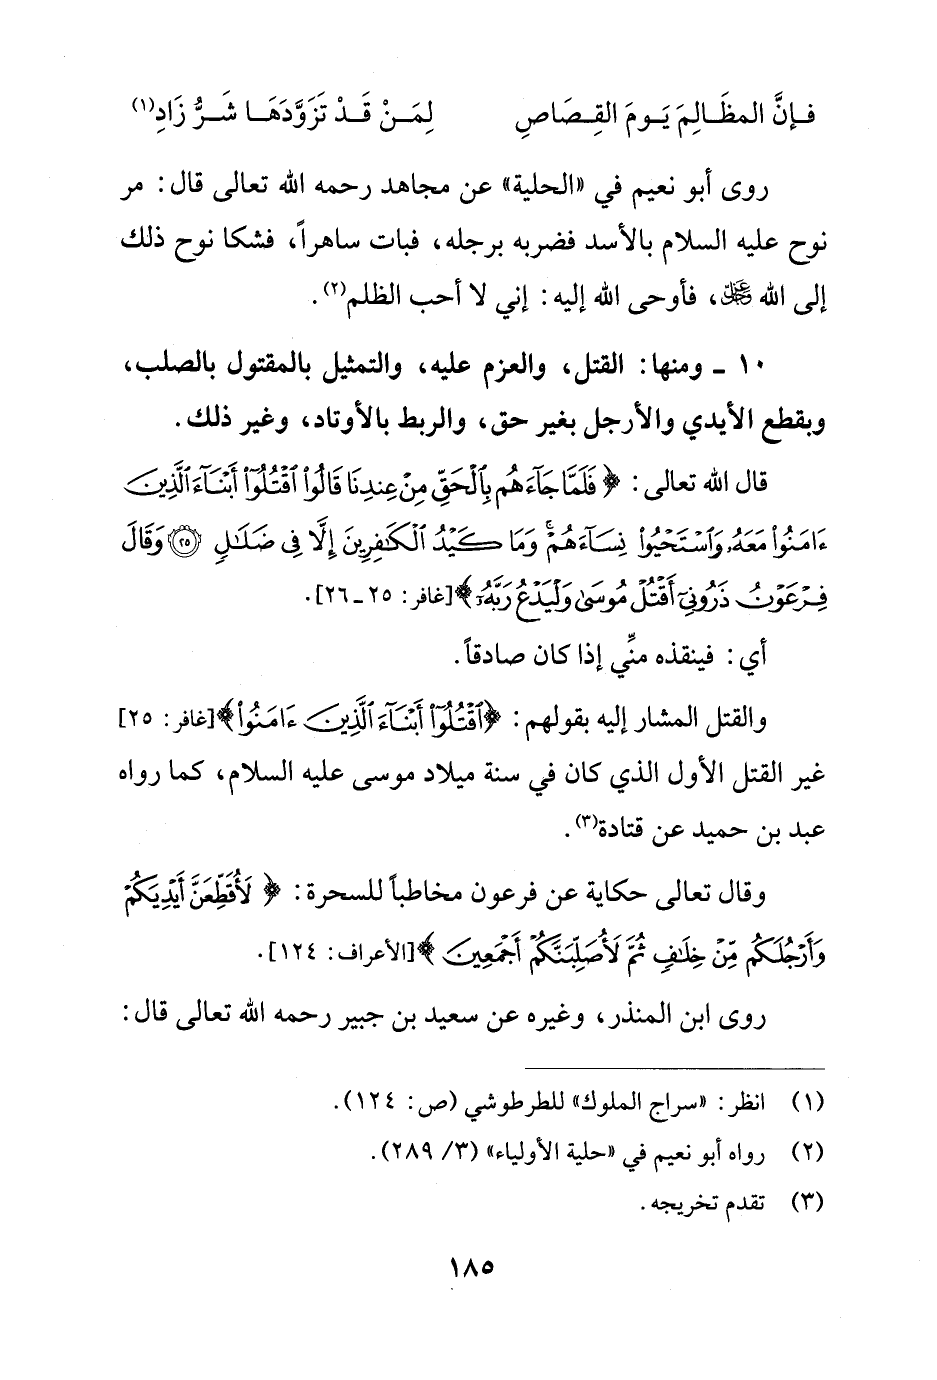 فـإنَّ المظَـالِمَ يَـومَ القِـصَاصِ لِمَـنْ قَـدْ تَزوَّدَهَـا شَـرُّ زَادِ(١)
روى أبو نعيم في «الحلية» عن مجاهد رحمه الله تعالى قال: مر
نوح عليه السلام بالأسد فضربه برجله، فبات ساهراً، فشكا نوح ذلك
إلى الله ﷻ، فأوحى الله إليه: إني لا أحب الظلم(٢).
١٠ - ومنها: القتل، والعزم عليه، والتمثيل بالمقتول بالصلب،
وبقطع الأيدي والأرجل بغير حق، والربط بالأوتاد، وغير ذلك.
قال الله تعالى: ﴿فَلَمَّا جَآءَهُم بِٱلْحَقِّ مِنْ عِندِنَا قَالُوا۟ ٱقْتُلُوٓا۟ أَبْنَآءَ ٱلَّذِينَ
ءَامَنُوا۟ مَعَهُۥ وَٱسْتَحْيُوا۟ نِسَآءَهُمْ ۚ وَمَا كَيْدُ ٱلْكَٰفِرِينَ إِلَّا فِى ضَلَٰلٍ ٢٥ وَقَالَ
فِرْعَوْنُ ذَرُونِىٓ أَقْتُلْ مُوسَىٰ وَلْيَدْعُ رَبَّهُۥٓ﴾[غافر: ٢٥ - ٢٦].
أي: فينقذه منِّي إذا كان صادقاً.
والقتل المشار إليه بقولهم: ﴿ٱقْتُلُوٓا۟ أَبْنَآءَ ٱلَّذِينَ ءَامَنُوا۟﴾[غافر: ٢٥]
غير القتل الأول الذي كان في سنة ميلاد موسى عليه السلام، كما رواه
عبد بن حميد عن قتادة(٣).
وقال تعالى حكاية عن فرعون مخاطباً للسحرة: ﴿لَأُقَطِّعَنَّ أَيْدِيَكُمْ
وَأَرْجُلَكُم مِّنْ خِلَٰفٍ ثُمَّ لَأُصَلِّبَنَّكُمْ أَجْمَعِينَ﴾[الأعراف: ١٢٤].
روى ابن المنذر، وغيره عن سعيد بن جبير رحمه الله تعالى قال:
(١) انظر: «سراج الملوك» للطرطوشي (ص: ١٢٤).
(٢) رواه أبو نعيم في «حلية الأولياء» (٣/ ٢٨٩).
(٣) تقدم تخريجه.
١٨٥